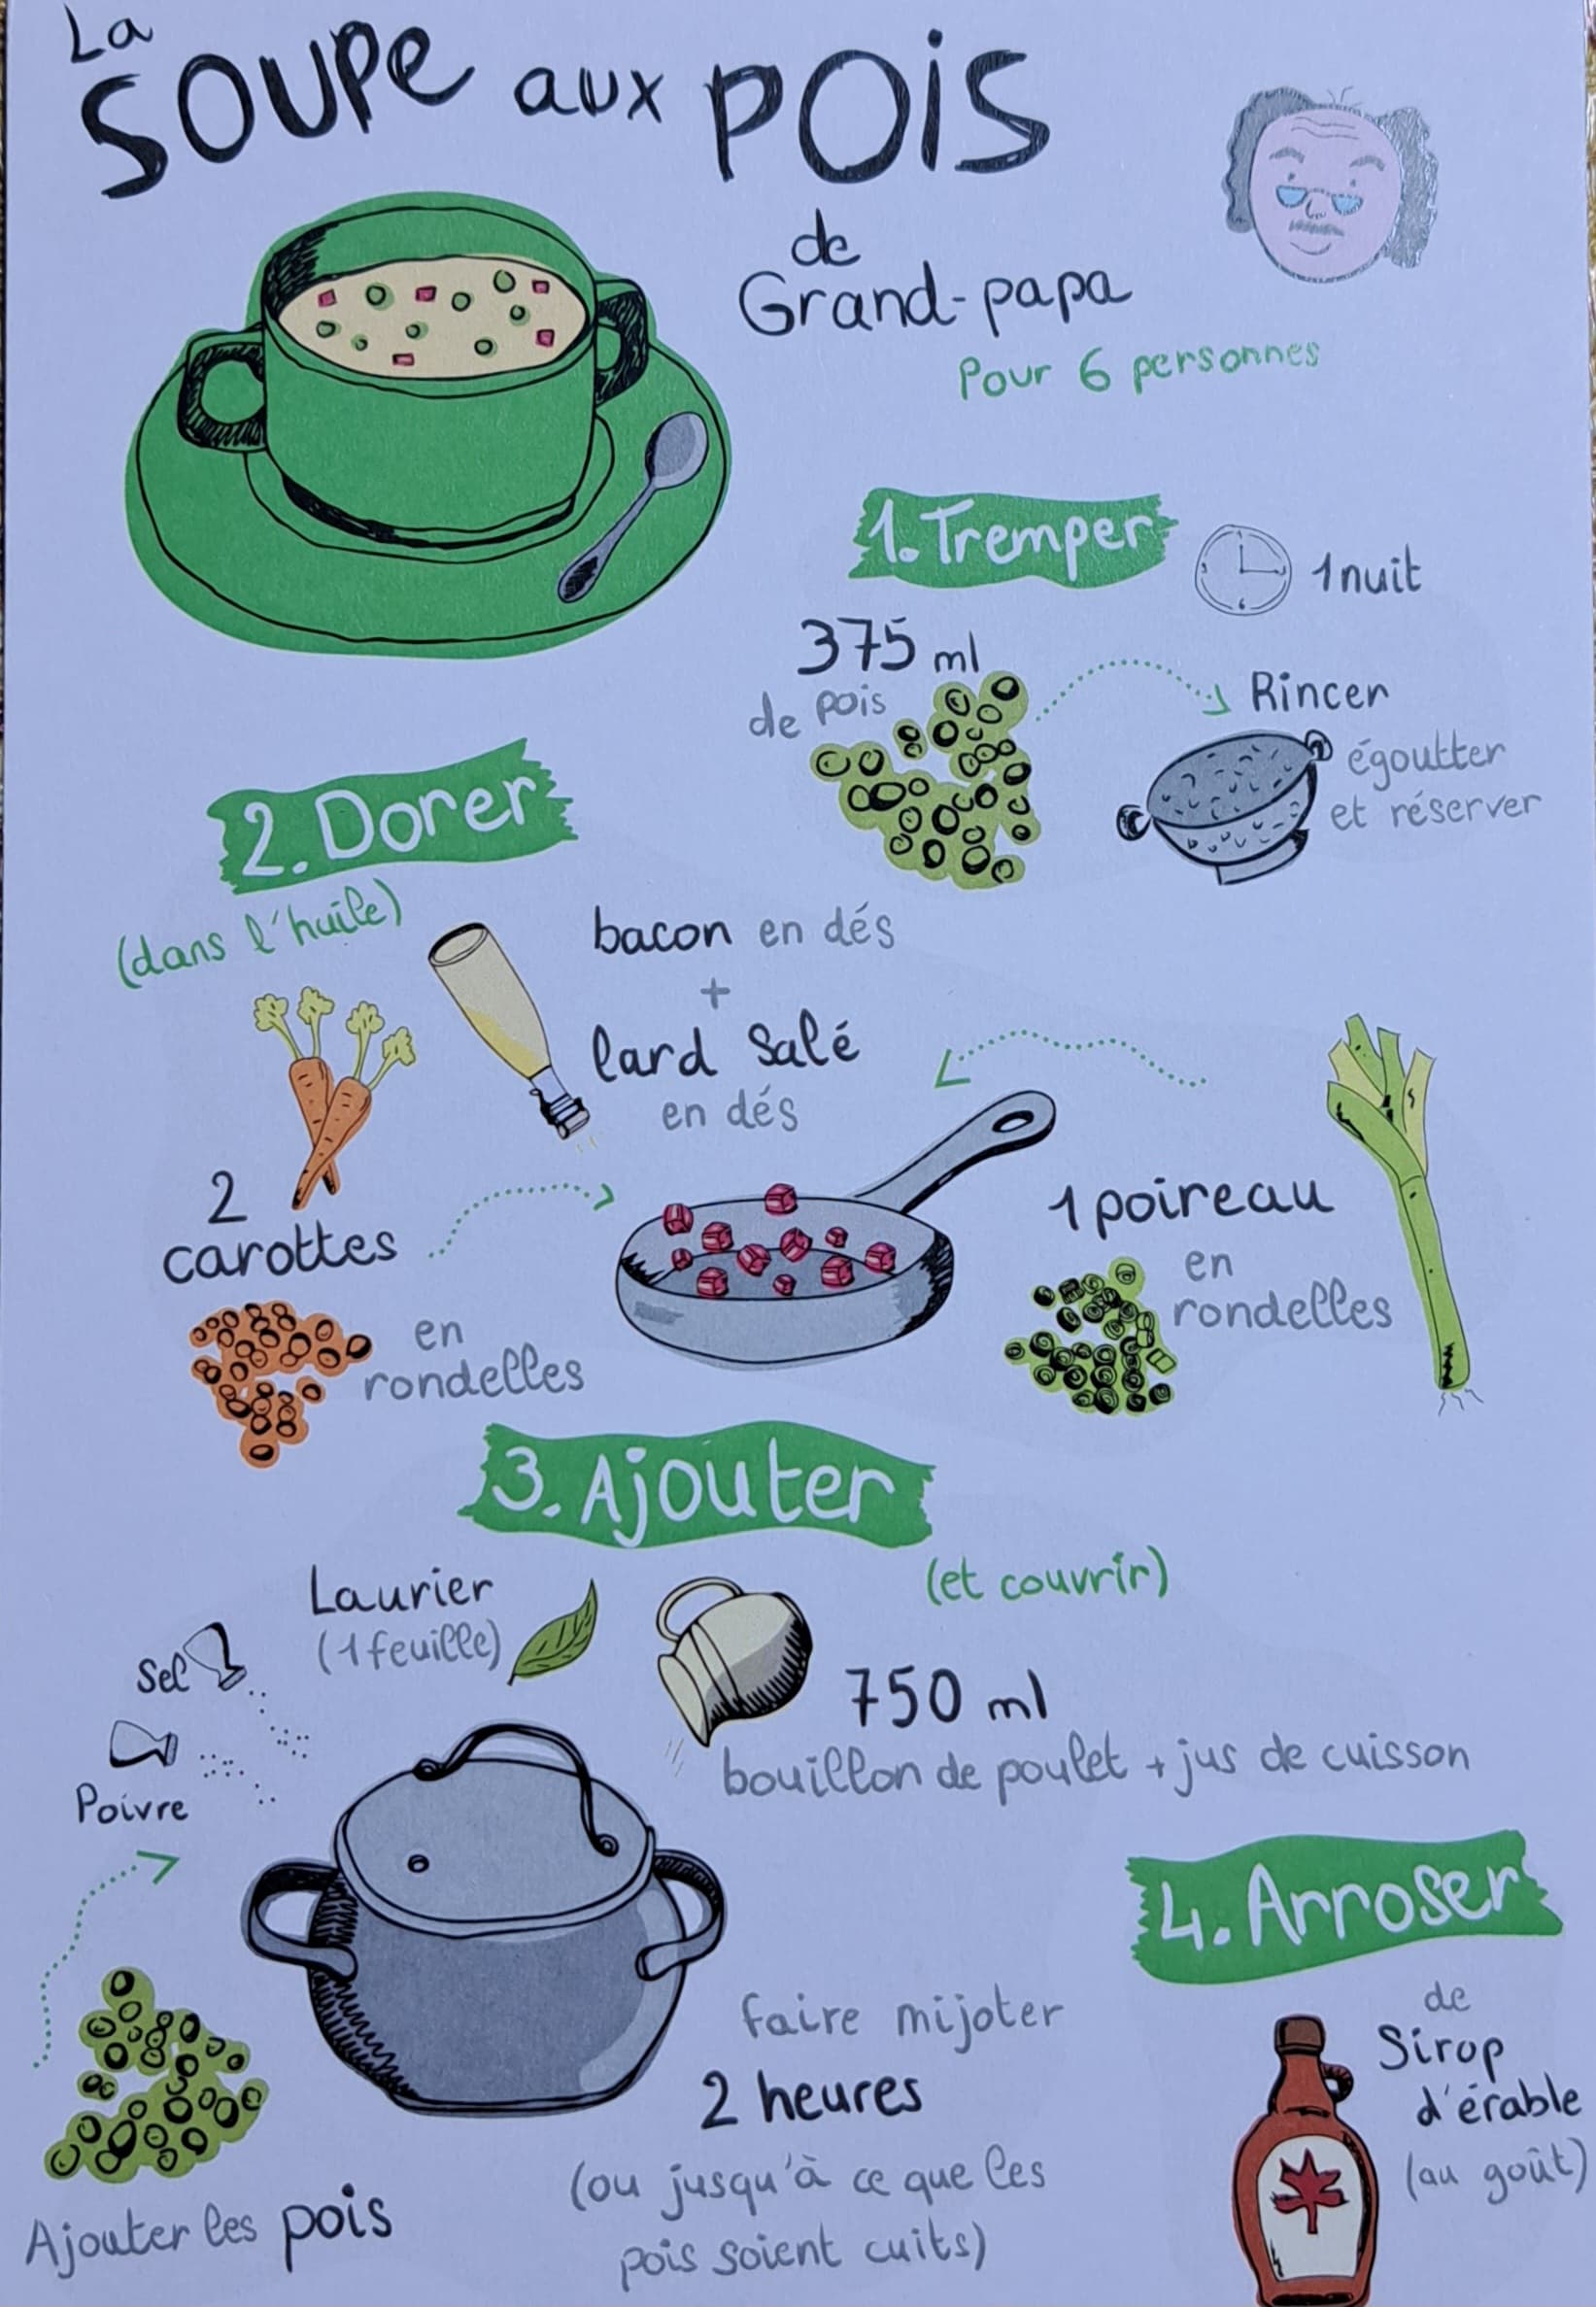 La
SOUPE aux POIS
de
Grand-papa
Pour 6 personnes
1. Tremper
1 nuit
375 ml
de pois
Rincer
égoutter
et réserver
2. Dorer
(dans l'huile)
bacon en dés
+
lard salé
en dés
2
carottes
en
rondelles
1 poireau
en
rondelles
3. Ajouter
(et couvrir)
Laurier
(1 feuille)
Sel
Poivre
750 ml
bouillon de poulet + jus de cuisson
Ajouter les pois
faire mijoter
2 heures
(ou jusqu'à ce que les
pois soient cuits)
4. Arroser
de
Sirop
d'érable
(au goût)